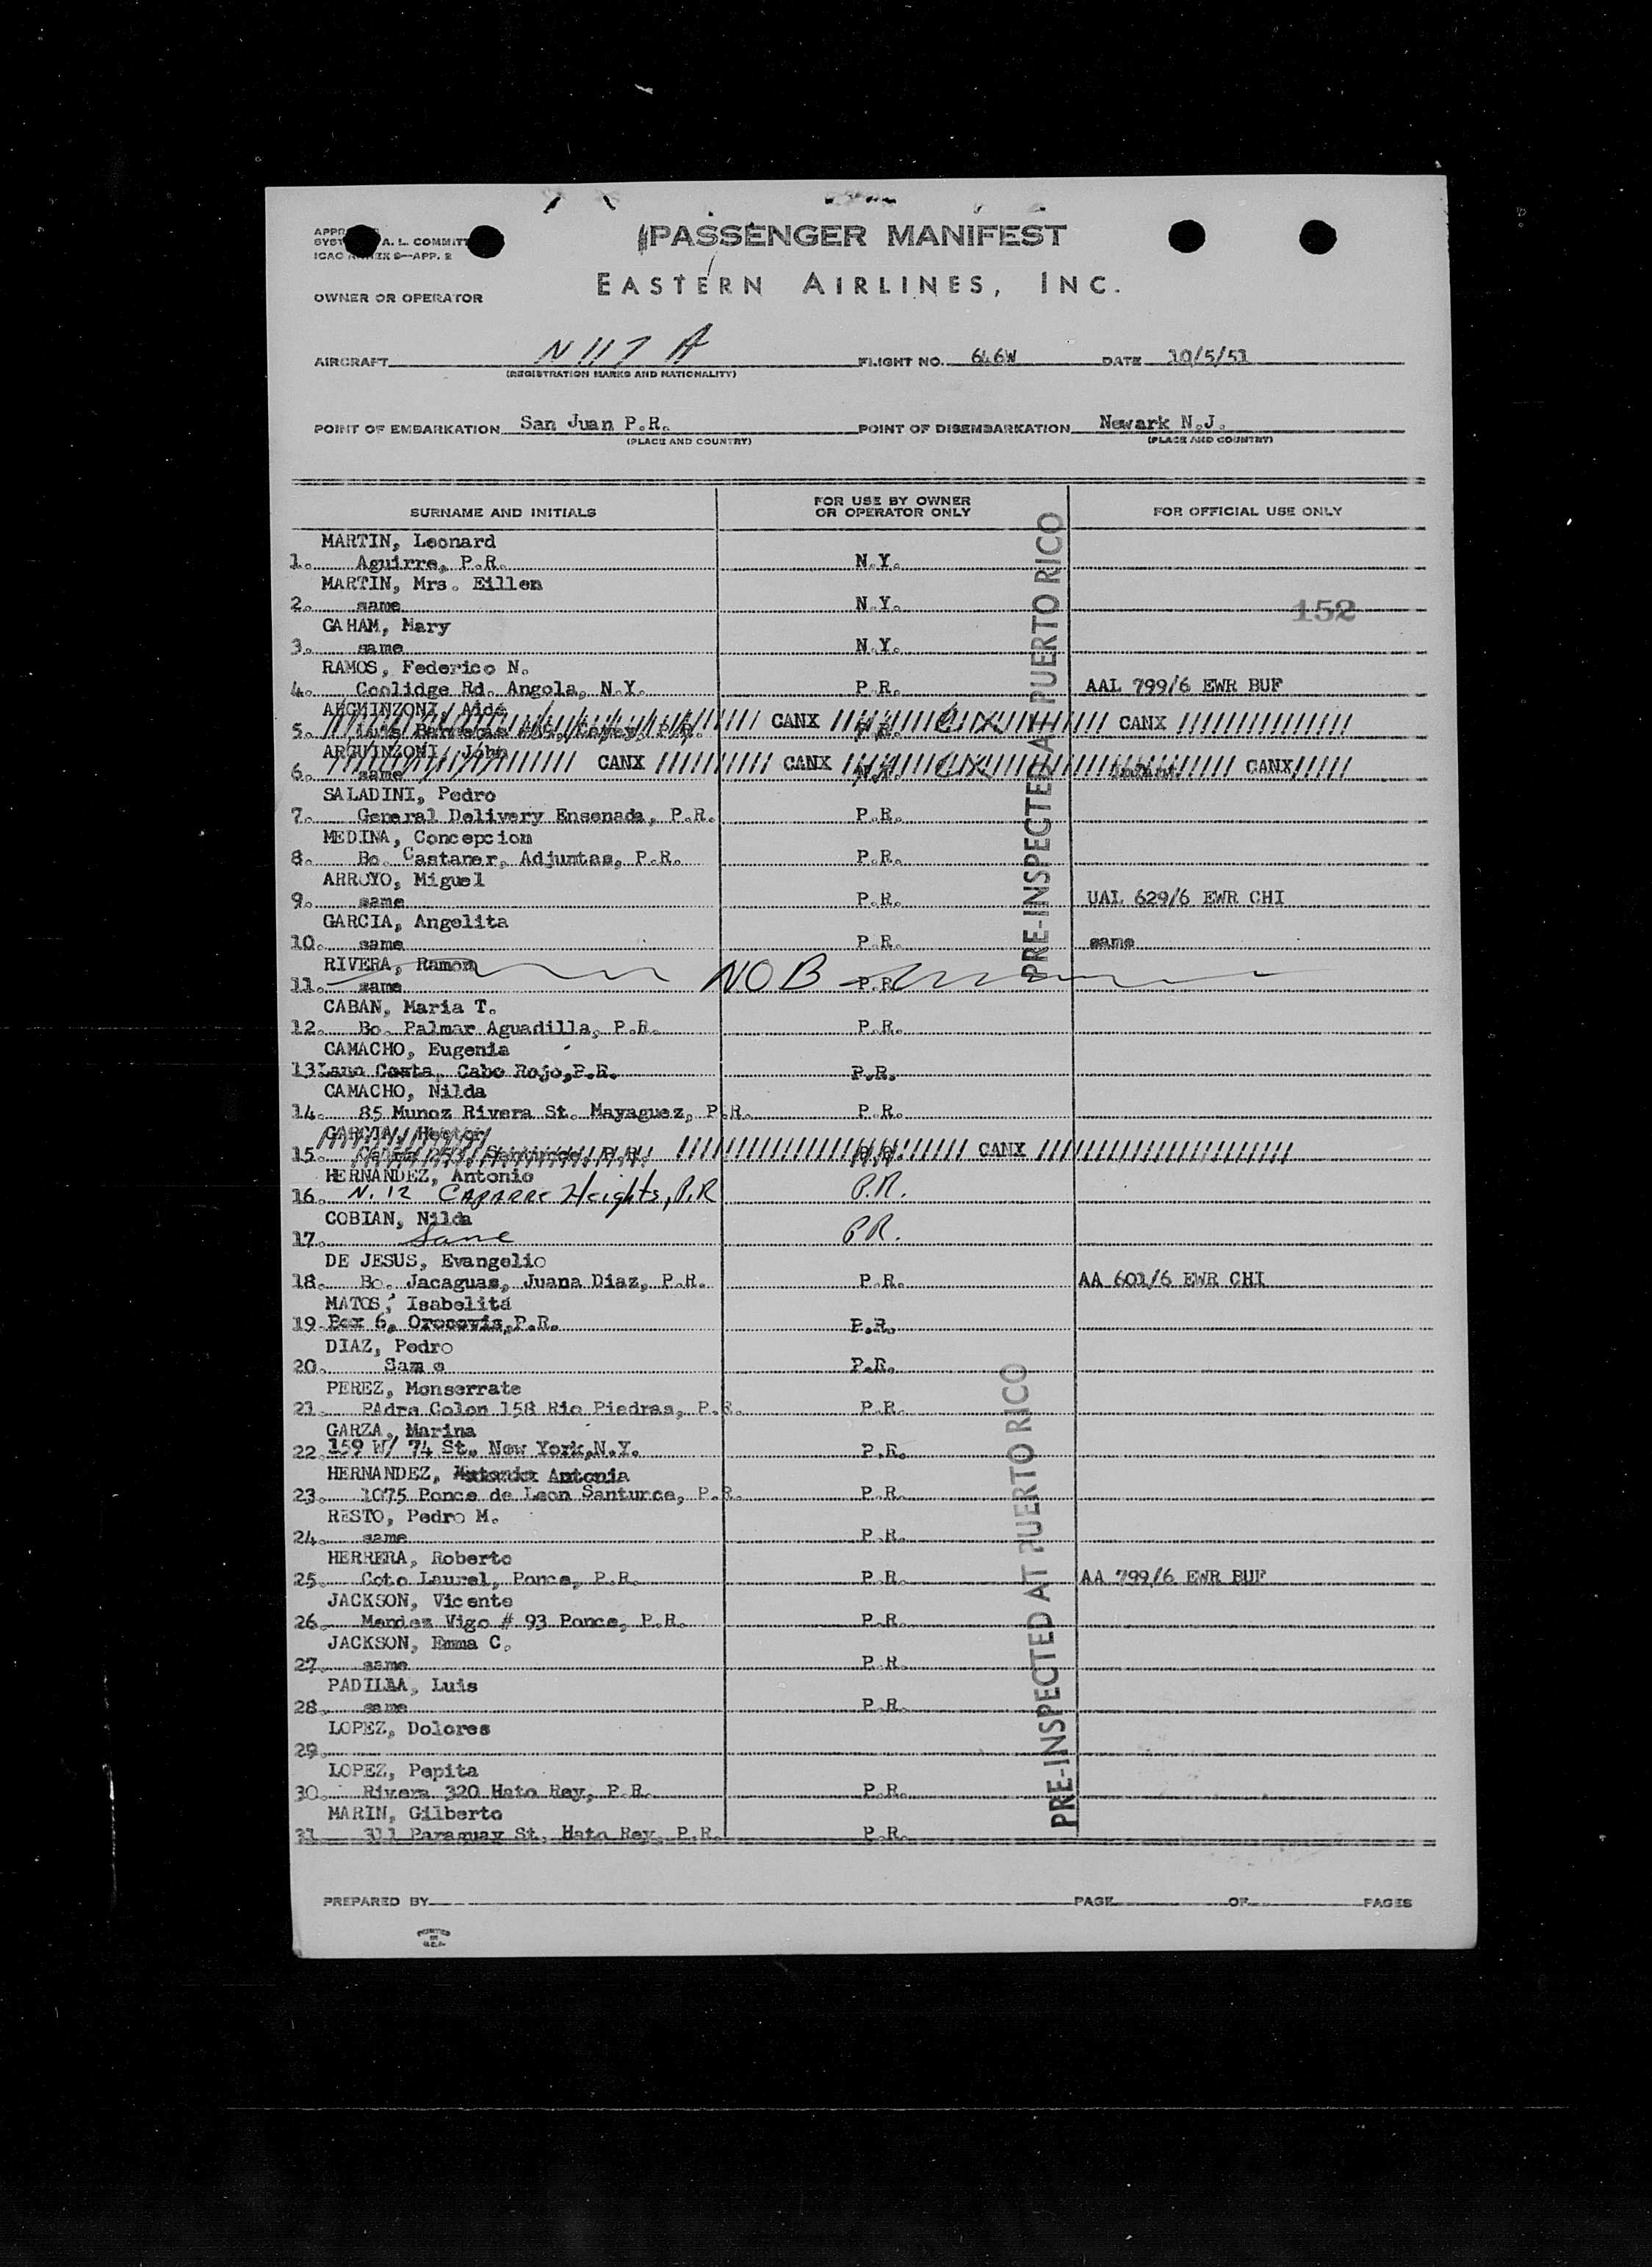 PASSENGER MANIFEST
EASTERN AIRLINES, INC.
A. L. COMMITT
APP. 2
OWNER OR OPERATOR
AIRCRAFT N 117 A FLIGHT NO. 646W DATE 10/5/51
(REGISTRATION MARKS AND NATIONALITY)
POINT OF EMBARKATION San Juan P.R. POINT OF DISEMBARKATION Newark N.J.
(PLACE AND COUNTRY) (PLACE AND COUNTRY)
SURNAME AND INITIALS FOR USE BY OWNER OR OPERATOR ONLY FOR OFFICIAL USE ONLY
MARTIN, Leonard
1. Aguirre, P.R. N.Y.
MARTIN, Mrs. Eillen
2. same N.Y. 152
GAHAM, Mary
3. same N.Y.
RAMOS, Federico N.
4. Coolidge Rd. Angola, N.Y. P.R. AAL 799/6 EWR BUF
ARGUINZONI, Aida
5. CANX CX CANX
ARGUINZONI, John
6. same CANX CANX N.Y. CX CANX
SALADINI, Pedro
7. General Delivery Ensenada, P.R. P.R.
MEDINA, Concepcion
8. Bo. Castaner, Adjuntas, P.R. P.R.
ARROYO, Miguel
9. same P.R. UAL 629/6 EWR CHI
GARCIA, Angelita
10. same P.R. same
RIVERA, Ramon
11. same NOB P.R.
CABAN, Maria T.
12. Bo. Palmar Aguadilla, P.R. P.R.
CAMACHO, Eugenia
13 Lano Costa, Cabo Rojo,P.R. P.R.
CAMACHO, Nilda
14. 85 Munoz Rivera St. Mayaguez, P.R. P.R.
GARCIA, Hector
15. Santurce, P.R. CANX
HERNANDEZ, Antonio
16. N. 12 Caparra Heights, P.R P.R.
COBIAN, Nilda
17. Same P.R.
DE JESUS, Evangelio
18. Bo. Jacaguas, Juana Diaz, P.R. P.R. AA 601/6 EWR CHI
MATOS, Isabelita
19. Box 6, Orocovis,P.R. P.R.
DIAZ, Pedro
20. Sam e P.R.
PEREZ, Monserrate
21. PAdra Colon 158 Rio Piedras, P.R. P.R.
GARZA, Marina
22. 159 W/ 74 St. New York,N.Y. P.R.
HERNANDEZ, Antonia
23. 1075 Ponce de Leon Santurce, P.R. P.R.
RESTO, Pedro M.
24. same P.R.
HERRERA, Roberto
25. Coto Laurel, Ponce, P.R. P.R. AA 799/6 EWR BUF
JACKSON, Vicente
26. Mendez Vigo # 93 Ponce, P.R. P.R.
JACKSON, Emma C.
27. same P.R.
PADILLA, Luis
28. same P.R.
LOPEZ, Dolores
29.
LOPEZ, Pepita
30. Rivera 320 Hato Rey, P.R. P.R.
MARIN, Gilberto
31 311 Paraguay St. Hato Rey, P.R. P.R.
PRE-INSPECTED AT PUERTO RICO
PRE-INSPECTED AT PUERTO RICO
PREPARED BY PAGE OF PAGES
PRINTED
IN
U.S.A.